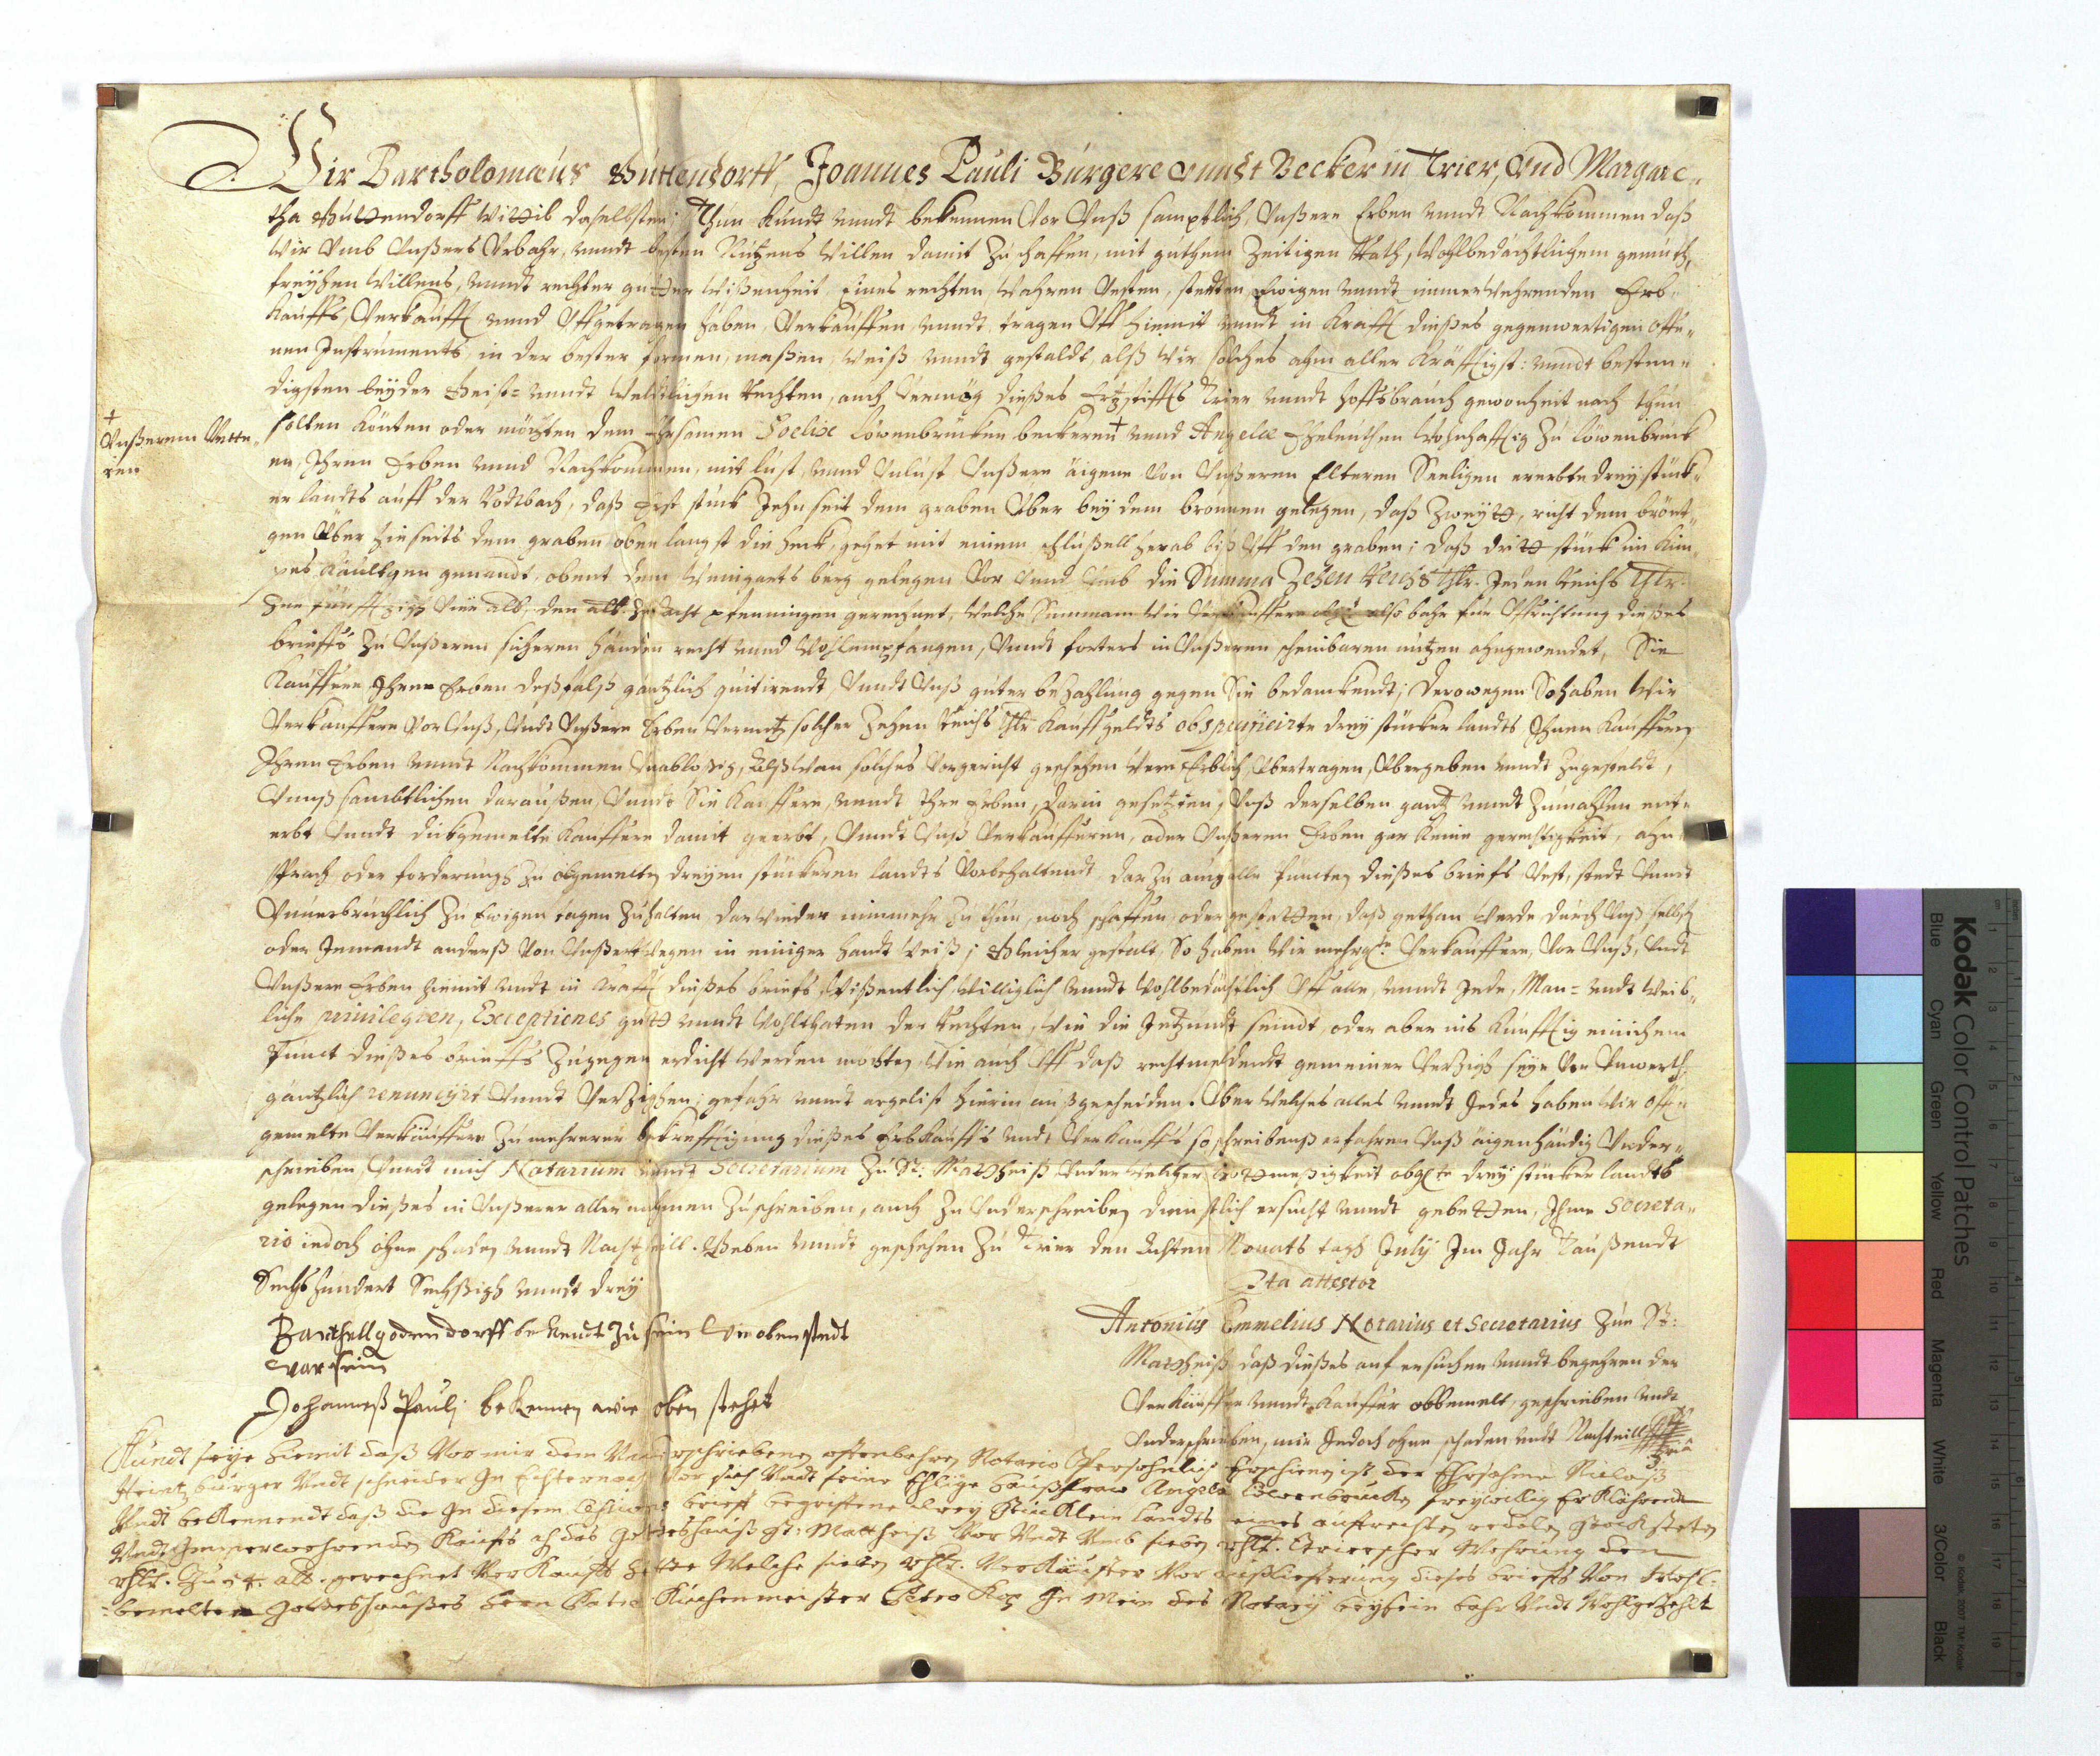 Wir Bartholomæus Guttendorff, Joannes Pauli Burgere unndt Becker in Trier, Und Margare-
tha Guttendorff Wittib daselbsten; Thun kundt unndt bekennen Vor Unß samptlich Unßere Erben unndt Nachkommen daß
Wir Umb Unßers Urbahr, unndt besten Nutzens Willen damit Zu schaffen, mit guthem Zeitigen Rath, Wohlbedächtlichem gemüth,
freyhen Willens, unndt rechter gutter Wißenheit eines rechten, Wahren Vesten, stetten, Ewigen unndt immerWehrenden Erb-
kauffs, Verkaufft unnd Uffgetragen haben, Verkauffen unndt tragen Uff hiemit unndt in Krafft dießes gegenwertigen offe-
nen Instruments, in der bester formen, maßen, Weiß unndt gestaldt, alß Wir solches ahm aller Kräfftigst: unndt besten-
digsten beyder Geist= unndt Weldtlichen Rechten, auch Vermög dießes Ertzstiffts Trier unndt hoffsbrauch gewonheit nach thun
+
Unßerem Vette-
ren
solten könten oder möchten dem Ehrsamen Foelix Löwenbrücken beckeren + unnd Angelæ Eheleuthen Wohnhafftig Zu Löwenbrück
en, Ihren Erben unnd Nachkommen, mit lust, unnd Unlust Unßere äigene Von Unßeren Elteren Seeligen ererbte drey stück-
er landts auff der Rodtbach, daß Erst stück Jehnseit dem graben Über bey dem bronnen gelegen, daß Zweytt, richt dem brönt-
gen Über hieseits dem graben oben langst die heck, gehet mit einem schlußell herab biß Uff den graben; daß dritt stück im Kim-
pes Käultgen genandt, obent dem Weingarts berg gelegen Vor Unnd Umb die Summa Zehen Reichs thlr. Jeden Reichs thlr.
Zue fünffzigh Vier alb: den alb. Zu acht pfenningen gerechnet, Welche Summam Wir Verkauffere also bahr für Uffrichtung dießes
brieffs Zu Unßeren sicheren händen recht unnd Wohl empfangen, Unndt forters in Unßeren scheinbaren nutzen ahngewendet, Sie
Kauffere Ihre Erben deßfalß gäntzlich quitirendt, Unndt Unß guter bezahlung gegen Sie bedanckendt; Derowegen So haben Wir
Verkauffere Vor Unß, Undt Unßere Erben Vermitz solcher Zehen Reichs thlr Kauffgeldts obspecificirte drey stücker landts Ihnen Kauffern
Ihren Erben unndt Nachkommen Unablößig, Alß Wan solches Vor gericht geschehen Were Erblich, Übertragen, Übergeben unndt Zugesteldt,
Unnß samblichen daraußen, Unndt Sie Kauffere, unndt Ihre Erben, darin gesetzten, Unß derselben gantz unndt Zumahlen ent-
erbt Unndt dickgemelte Kauffere damit geerbt, Unndt Unß Verkaufferen, oder Unßeren Erben gar keine gerechtigkeit, ahn-
sprach oder forderungh Zu obgemelten dreyen stückeren landts Vorbehaltendt, dar Zu auch alle puncten dießes briefs Vest, stedt Unndt
Unuerbrüchlich Zu Ewigen tagen Zuhalten, darwieder nimmehr Zu thun, noch schaffen, oder gestatten, daß gethan Werde durch Unß selbst
oder Jemandt anderß Von Unßertwegen in einiger handt Weiß; Gleicher gestalt, So haben Wir mehrgte Verkauffere, Vor Unß, Undt
Unßere Erben hiemit Undt in Krafft dießes briefs Wißentlich Williglich Unndt Wohlbedächtlich Uff alle, unndt Jede, Man= undt Weib-
liche priuilegien, Exceptiones gutt unndt Wohlthaten der Rechten, Wie die Jetzundt seindt, oder aber ins künfftig einichem
Punct dießes brieffs Zugegen erdicht Werden möchten, Wie auch Uff daß rechtmeldendt gemeiner Verzigh seye Von Unwerth,
gäntzlich renuncijrt Unndt Verzighen; gefahr unndt argelist hierin außgescheiden. Über Welches alles unndt Jedes haben Wir offt-
gemelte Verkäuffere Zu mehrerer bekrefftigung dießes Erbkauffs undt Verkauffs so schreibenß erfahren Unß äigenhändig Under-
schrieben, Unndt mich Notarium unndt Secretarium Zu St: Mattheiß Under Welcher Bottmeßigkeit obgte drey stücker landts
gelegen dießes in Unßerer aller nahmen Zuschreiben, auch Zu Underschreiben dienstlich ersucht unndt gebetten, Ihme Secreta-
rio iedoch ohne schaden unndt Nachtheill. Geben unndt geschehen Zu Trier den Achten Monats tagh July Im Jahr Taußendt
Sechshundert Sechßigh unndt drey
Ita attestor
Barthell godendorff bekendt Zu sein Wie oben stedt
war sein
Johanneß Pauli bekennen wie oben stehet
Antonius Emmelius Notarius et Secretarius Zue St:
Mattheiß daß dießes auf ersuchen unndt begehren der
Verkäuffer unndt Kauffer obbemelt, geschrieben undt
Underschrieben, mir Jedoch ohne schaden undt Nachteill
Kundt seye hiemit daß Vor mir dem Underschriebenen offenbahren Notario Persohnlich Erschienen ist der Ehrsahme Niclaß
Heintz burger Undt schneider In Echternach Vor sich Undt seine Ehlige haußfraw Angela Löwenbrucken freywillig Erklährendt
Undt bekennendt daß die In diesem brieff begriffene drey stücklein landts eines auffrechten redelen Stock steten
Undt Immerwehrenden Kauffs ahn das Gotteshauß St: Mattheiß Vor Undt Umb sieben rhlr. Trierscher Wehrung den
rhlr. Zu 54. alb. gerechnet Verkaufft hette Welche sieben rhlr. Verkäuffer Vor außlieferung dieses briefs Von Wohl-
bemelten Gotteshaußes hern Patre Kirchenmeister Petro In Mein des Notarij beysein bahr Undt Wohlgezehlt